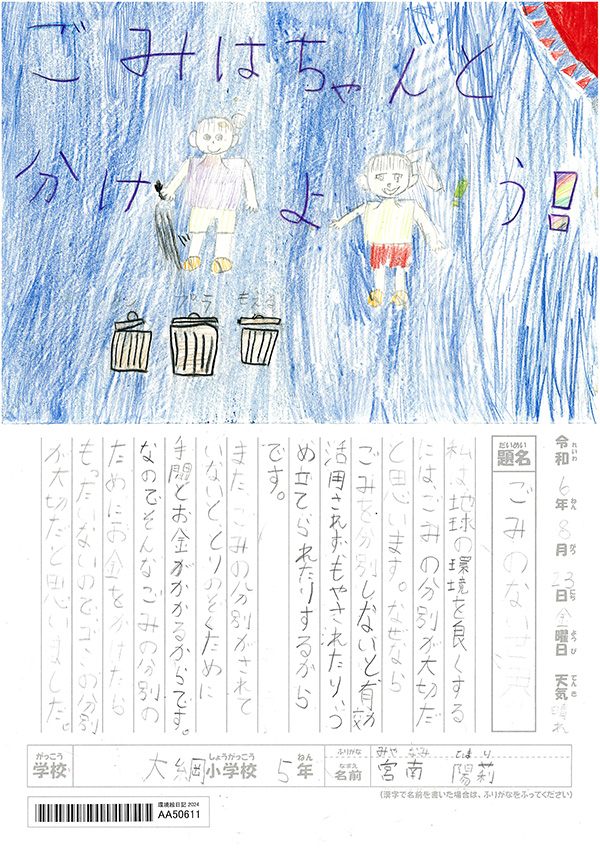 ごみはちゃんと
分けよう!
プラ
もえる
令和6年8月23日金曜日 天気 晴れ
れいわ ねん がつ にち ようび てんき
だいめい
題名
ごみのない世界
私は、地球の環境を良くする
には、ごみの分別が大切だ
と思います。なぜなら
ごみを分別しないと有効
活用されずもやされたり、う
め立てられたりするから
です。
また、ごみの分別がされて
いないと、とりのぞくために
手間とお金がかかるからです。
なのでそんなごみの分別の
ためにお金をかけたら
もったいないので、ごみの分別
が大切だと思いました。
がっこう しょうがっこう ねん
学校 大綱小学校 5年
ふりがな みやなみ ひまり
なまえ
名前 宮南 陽莉
(漢字で名前を書いた場合は、ふりがなをふってください)
環境絵日記 2024
AA50611